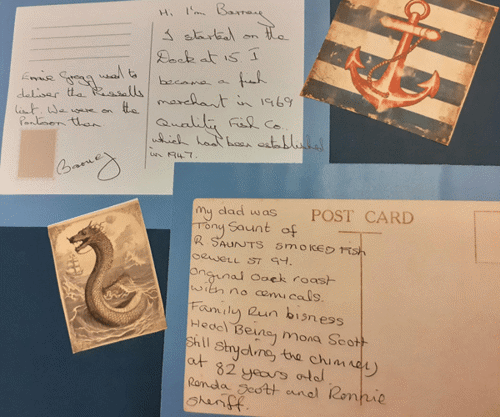 Ernie Gregg used to
deliver the
list. We were on the
Pontoon then
Barney
Hi, I'm Barney
I started on the
Dock at 15 I
became a fish
merchant in 1969
Quality Fish Co.
which had been established
in 1947.
POST CARD
my dad was
Tony Saunt of
R SAUNTS SMOKED FISH
ORWELL ST GY.
Original Oack roast
with no cemicals.
Family Run bisness
Head Being mona Scott
Still Stryding the chimney
at 82 years old
Renda Scott and Ronnie
Sheriff.